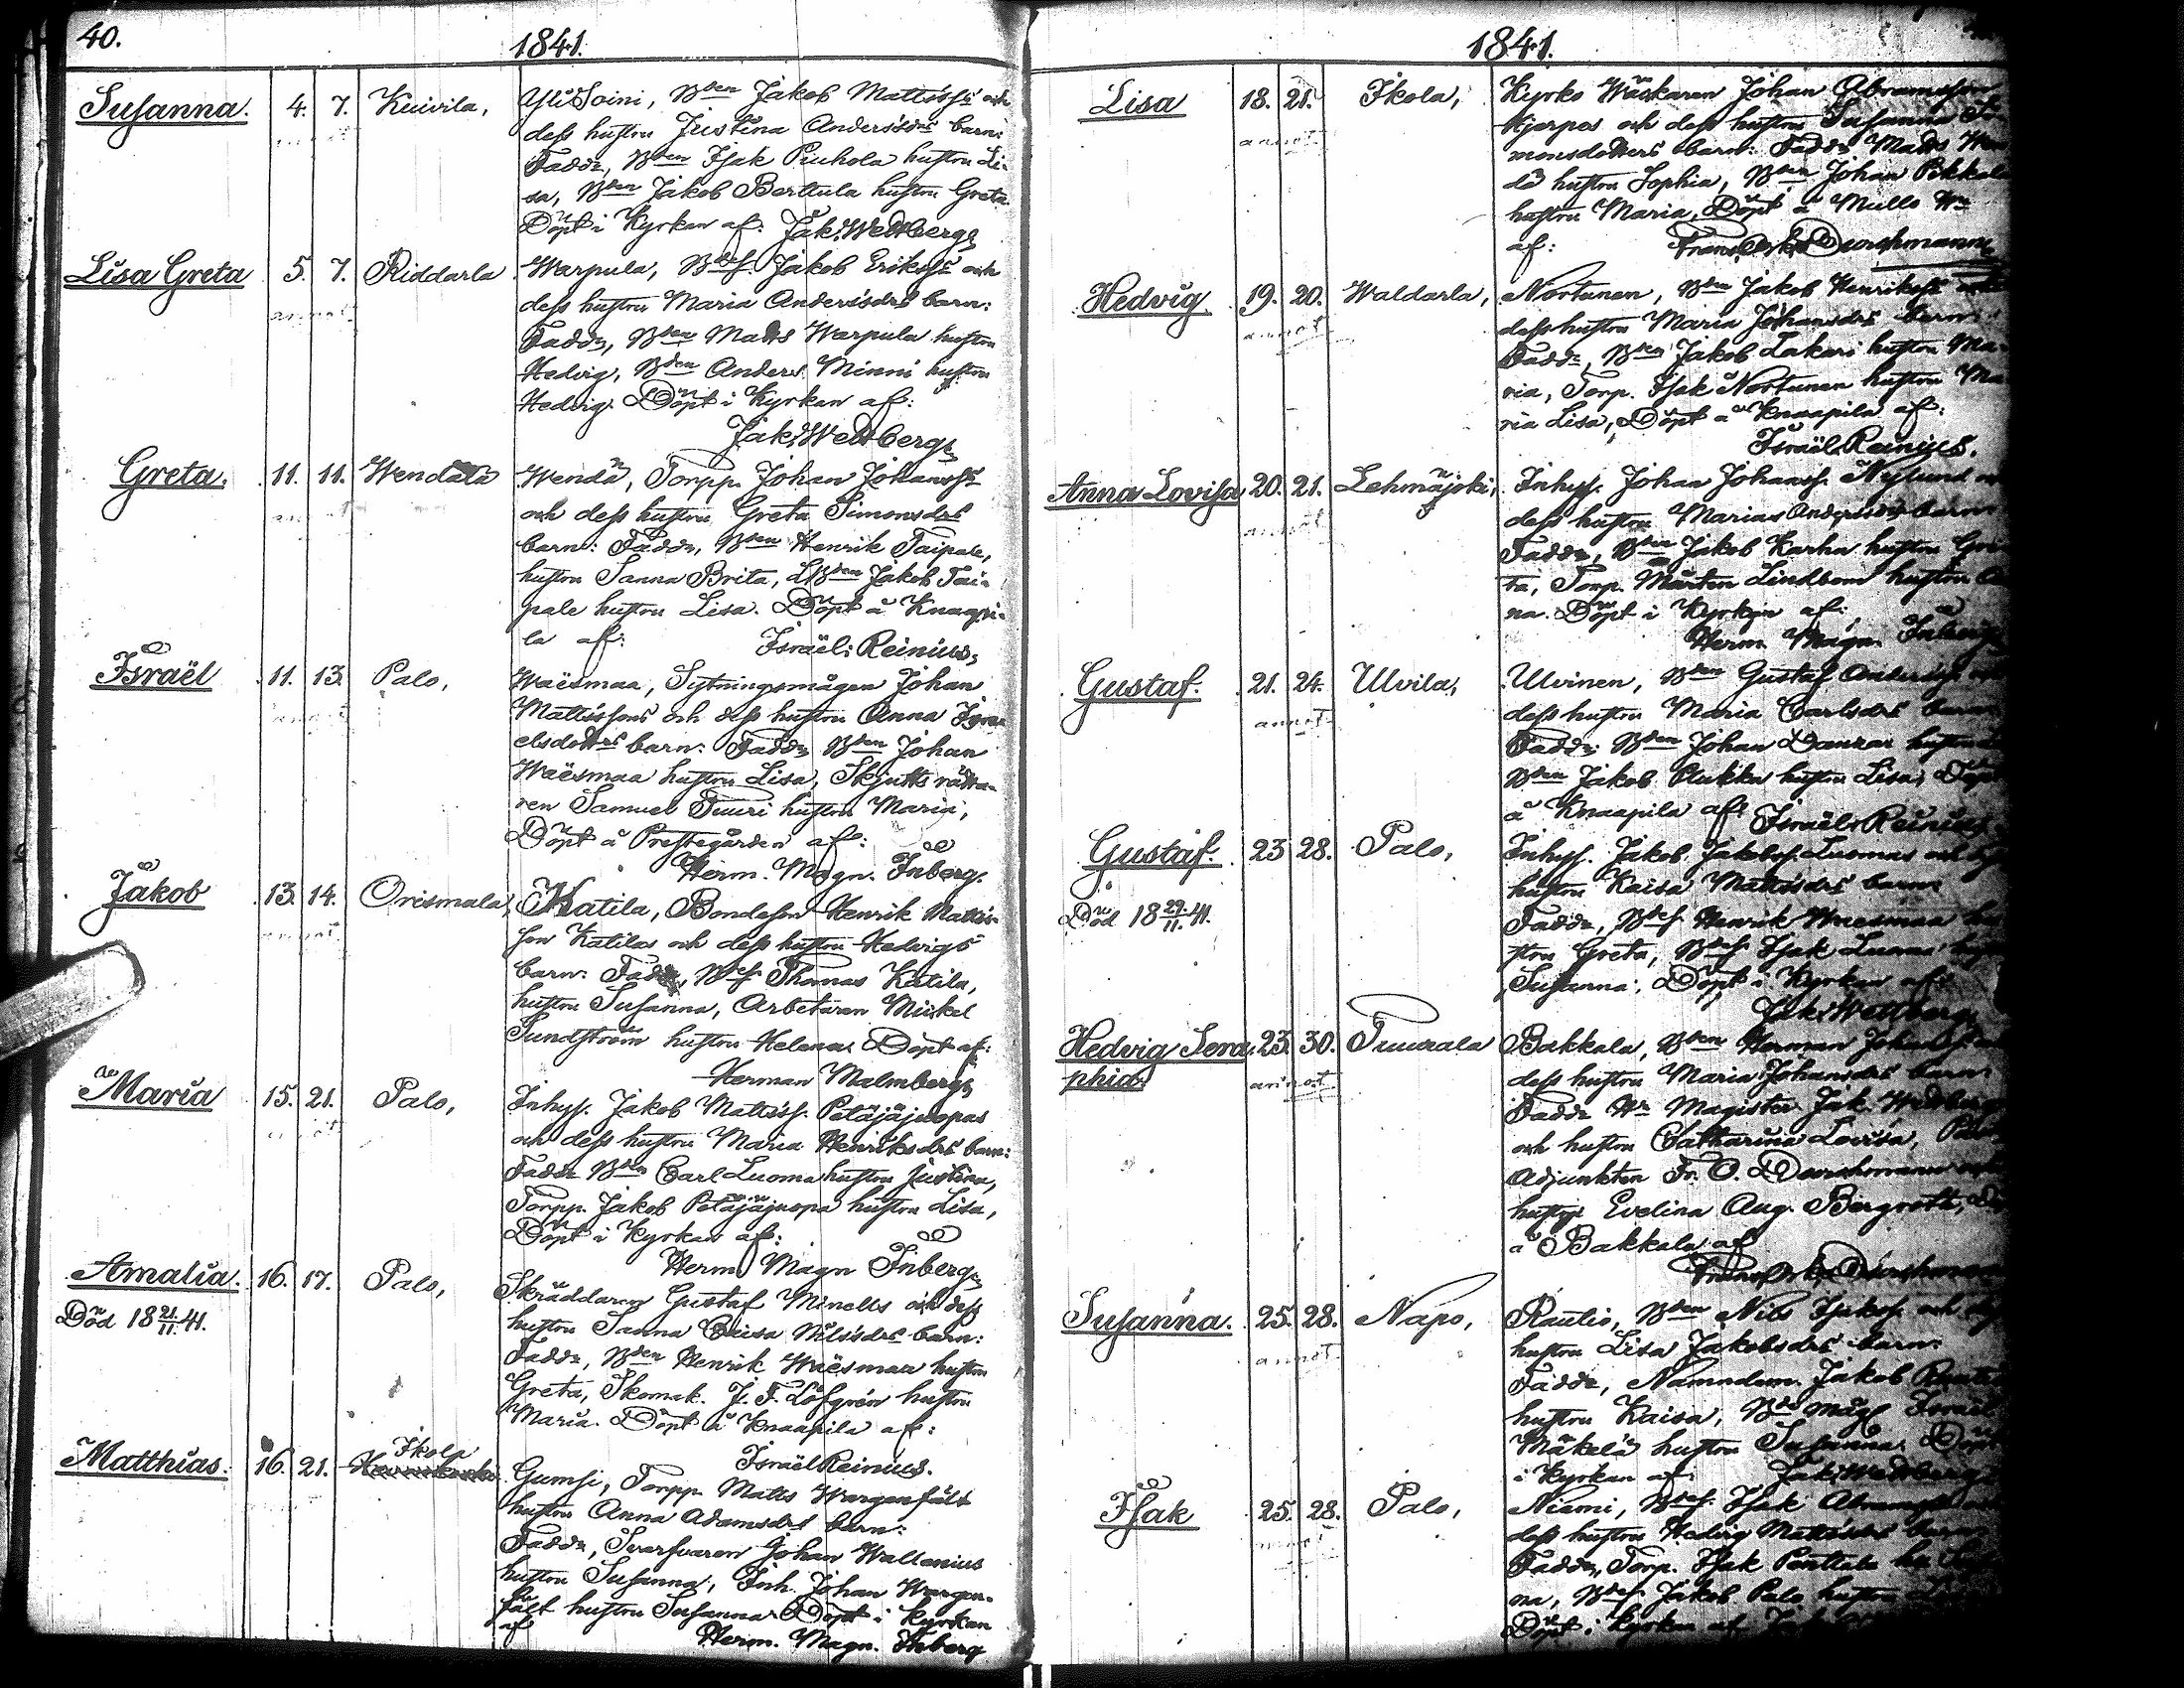 40.
1841.
Susanna. 4. 7. Kuivila, Yli Soini, Bden Jakob Mattss's och
dess hustru Justina Anderssdrs barn:
Fadd:, Bden Isak Piuhola hustru Li-
sa, Bden Jakob Berttula hustru Greta
Döpt i Kyrkan af: Jak: Wettberg,
Lisa Greta 5. 7. Riddarla Warpula, Bdes. Jakob Erikss's och
annot.
dess hustru Maria Andersdrs barn:
Fadd:, Bden Matts Warpula hustru
Hedvig, Bden Anders Minni hustru
Hedvig. Döpt i Kyrkan af:
Jak: Wettberg,
Greta. 11. 11. Wendälä Wendä, Torpp. Johan Johanss's
och dess hustru Greta Simonsdrs
barn: Fadd:, Bden Henrik Taipale,
hustru Sanna Brita, Bden Jakob Tai-
pale hustru Lisa. Döpt å Knaapi-
la af: Israël: Reinius,
Israël 11. 13. Palo, Waësmaa, Sytningsmågen Johan
Mattssons och dess hustru Anna Isra-
elsdotters barn: Fadd:, Bden Johan
Waësmaa hustru Lisa, Skjutts rätta-
ren Samuel Tuuri hustru Maria,
Döpt å Prestegården af:
Herm. Magn. Inberg.
Jakob 13. 14. Orismala, Katila, Bondeson Henrik Matts-
son Katilas och dess hustru Hedvigs
barn: Fadd:, Bdes. Thomas Katila,
hustru Susanna, Arbetaren Mickel
Sundström hustru Helena. Döpt af:
Herman Malmberg,
Maria 15. 21. Palo, Inhys. Jakob Mattss. Petäjäjuopas
och dess hustru Maria Henriksdrs barn:
Fadd: Bden Carl Luoma hustru Justina,
Torpp. Jakob Petäjäjuopa hustru Lisa,
Döpt i Kyrkan af:
Herm. Magn Inberg,
Amalia. 16. 17. Palo, Skräddaren Gustaf Minells och dess
Död 18 21/11. 41.
hustru Sanna Caisa Nilssdrs barn:
Fadd:, Bden Henrik Waësmaa hustru
Greta, Skomak. J. F. Löfgrén hustru
Maria. Döpt å Knaapila af:
Israël Reinius.
Ikola
Matthias. 16. 21. Gumsi, Torpp. Matts Wargenfält
hustru Anna Adamsdrs barn:
Fadd:, Svarfvaren Johan Wallenius
hustru Susanna, Inh. Johan Wargen-
fält hustru Susanna. Döpt i Kyrkan
af Herm. Magn. Inberg
1841.
Lisa 18. 21. Ikola, Kyrko Wäktaren Johan Abramsson
annot.
Hjerpes och dess hustru Susanna Si-
monsdotters barn: Fadd: Matts Wen
dä hustru Sophia, Bden Johan Pikkala
hustru Maria, Döpt å Mullo
af: Frans Osk: Durchmann
Hedvig. 19. 20. Waldarla, Nortunen, Bden Jakob Henrikss's och
annot.
dess hustru Maria Johansdrs barn:
Fadd:, Bden Jakob Lakari hustru Ma-
ria, Torp. Isak Nortunen hustru Ma
ria Lisa, Döpt å Knaapila af:
Israël Reinius.
Anna Lovisa 20. 21. Lehmäjoki, Inhys. Johan Johanss. Nylund
annot.
dess hustru Marias Andersdrs barn
Fadd:, Bden Jakob Karha hustru Gre
ta, Torp. Mårten Lindbom hustru
na. Döpt i Kyrkan af:
Herm. Magn. Inberg
Gustaf. 21. 24. Ulvila, Ulvinen, Bden Gustaf Anderss.
annot.
dess hustru Maria Carlsdrs barn
Fadd: Bden Johan hustru
Bden Jakob Plukka hustru Lisa, Döpt
å Knaapila af: Israël: Reinius
Gustaf. 23 28. Palo, Inhys. Jakob Jakobss. Luomas och
Död 18 29/11. 41.
hustru Kaisa Mattssdrs barn:
Fadd:, Bdes. Henrik Waësmaa hu
stru Greta, Bdes. Isak Luoma
Susanna, Döpt i Kyrkan af:
Jak: Wettberg
Hedvig Sera 23. 30. Tuurala Bakkala, Bden Herman Johans
phia annot.
dess hustru Maria Johansdrs barn:
Fadd: Hr Magister Jak. Wettberg
och hustru Catharina Lovisa,
Adjunkten Fr. O. Durchmann
hustru Evelina Aug. Bergroth,
å Bakkala af
Frans Osk: Durchmann
Susanna. 25. 28. Napo, Rautio, Bden Nils Isakss. och
annot.
hustru Lisa Jakobsdrs barn:
Fadd:, Nämndem. Jakob
hustru Kaisa, Bde måg Israel
Mäkelä hustru Susanna. Döpt
i Kyrkan af: Jak: Wettberg
Isak 25. 28. Palo, Niemi, Bdes. Isak Abramss.
dess hustru Hedvig Mattssdrs barn
Fadd:, Torp. Isak Panttila hu
na, Bdes. Jakob Palo hustru
Döpt i Kyrkan af